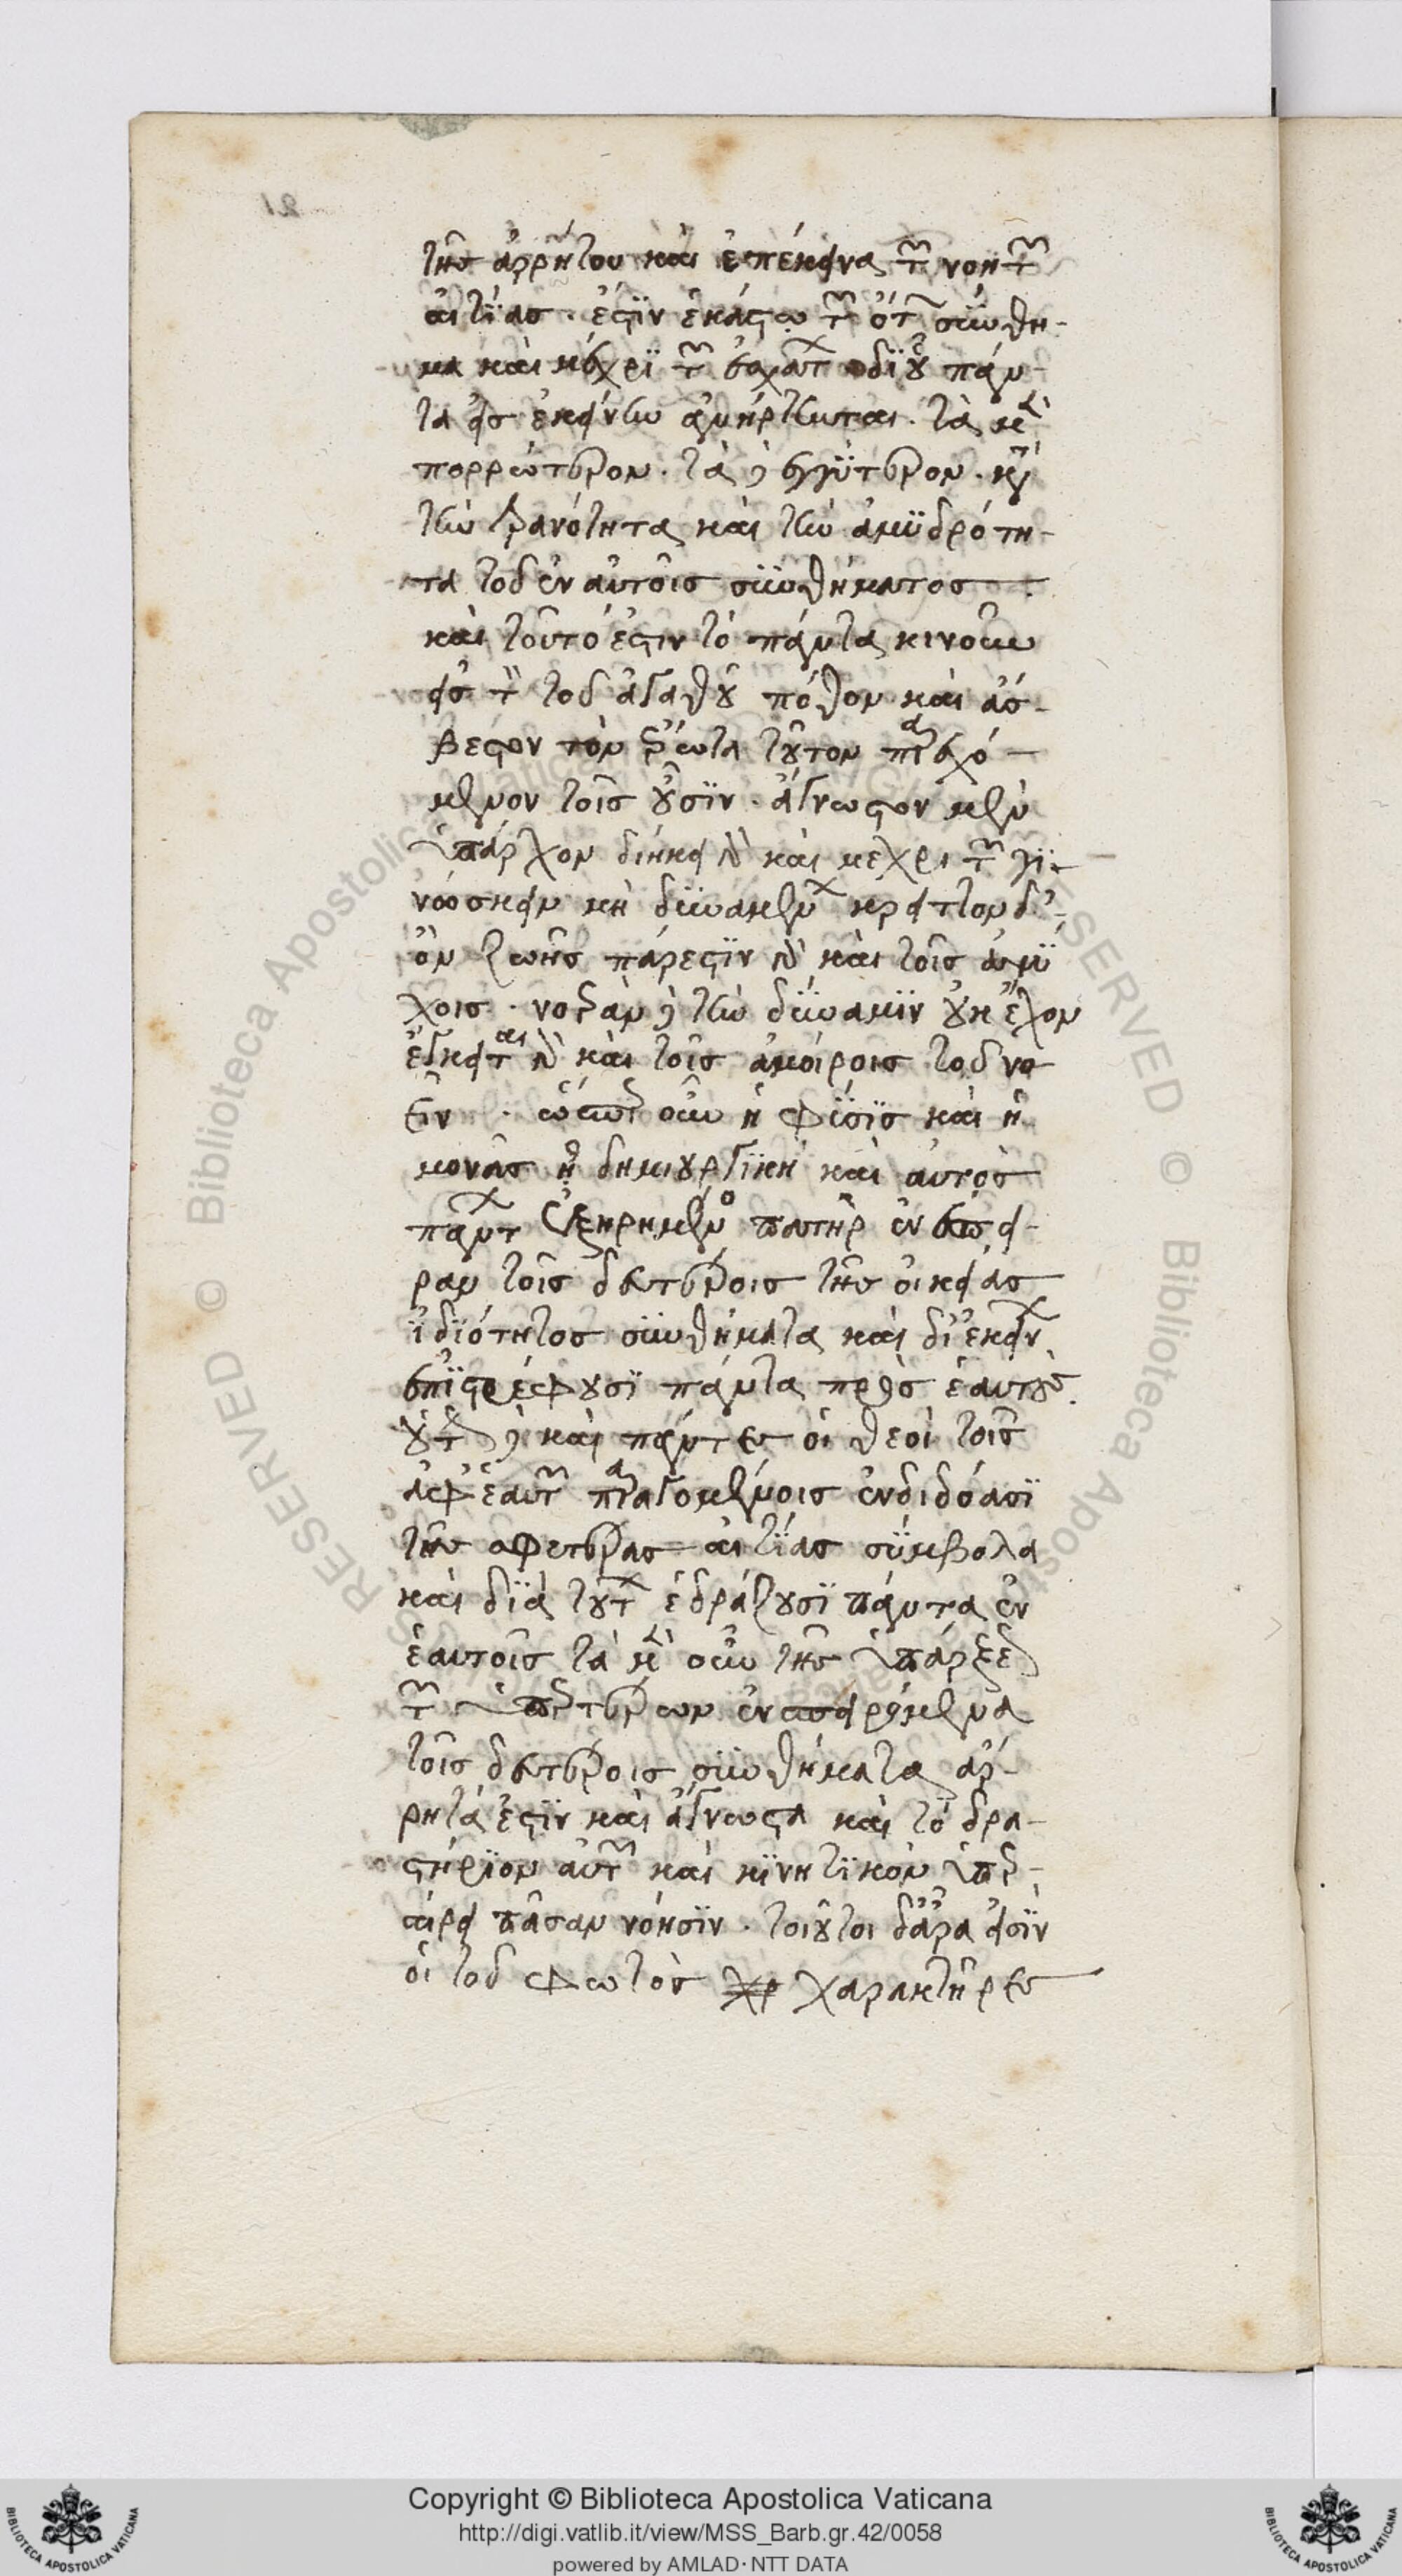 τῆς ἀρρήτου καὶ ἐπέκεινα τῶν νοητῶν
αἰτίας. ἔστιν ἑκάστω τῶν ὄντων σύνθη-
μα καὶ μέχρι τῶν ἐσχάτων δι' οὗ πάν-
τα εἰς ἐκείνην ἀνήρτηνται. τὰ μὲν
πορρώτερον. τὰ δὲ ἐγγύτερον. κατὰ
τὴν τρανότητα καὶ τὴν ἀμυδρότη-
τα τοῦ ἐν αὐτοῖς συνθήματος
καὶ τοῦτό ἐστιν τὸ πάντα κινοῦν
εἰς τὸν τοῦ ἀγαθοῦ πόθον καὶ ἄσ-
βεστον τὸν ἔρωτα τοῦτον παρεχό-
μενον τοῖς οὖσιν. ἄγνωστον μὲν
ὑπάρχον διήκει γὰρ καὶ μέχρι τῶν γι-
νώσκειν μὴ δυναμένων κρεῖττον δὲ
ὂν ζωῆς πάρεστιν γὰρ καὶ τοῖς ἀψύ
χοις. νοερὰν δὲ τὴν δύναμιν οὐκ ἔχον
ἔγκειται γὰρ καὶ τοῖς ἀμοίροις τοῦ νο
εῖν. ὥσπερ οὖν ἡ φύσις καὶ ἡ
μονὰς ἡ δημιουργικὴ καὶ αὐτὸς
πάντων ἐξηρημένος πατὴρ ἐνέσπει-
ραν τοῖς δευτέροις τῆς οἰκείας
ἰδιότητος συνθήματα καὶ δι' ἐκείνων
ἐπιστρέφουσι πάντα πρὸς ἑαυτούς.
οὕτω δὲ καὶ πάντες οἱ θεοὶ τοῖς
ἀφ' ἑαυτῶν παραγομένοις ἐνδιδόασι
τῆς σφετέρας αἰτίας σύμβολα
καὶ διὰ τούτων ἑδράζουσι πάντα ἐν
ἑαυτοῖς τὰ μὲν οὖν τῆς ὑπάρξεως
τῶν ὑπερτέρων ἐνσπειρόμενα
τοῖς δευτέροις συνθήματα ἄρ-
ρητά ἐστιν καὶ ἄγνωστα καὶ τὸ δρα-
στήριον αὐτῶν καὶ κινητικὸν ὑπερ-
αίρει πᾶσαν νόησιν. τοιοῦτοι δ' ἄρα εἰσὶν
οἱ τοῦ φωτὸς χαρακτῆρες
Copyright © Biblioteca Apostolica Vaticana
http://digi.vatlib.it/view/MSS_Barb.gr.42/0058
powered by AMLAD·NTT DATA